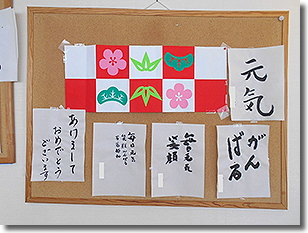 元気
あけまして
おめでとう
ございます
毎日元気
毎日元気
笑顔
がん
ばる